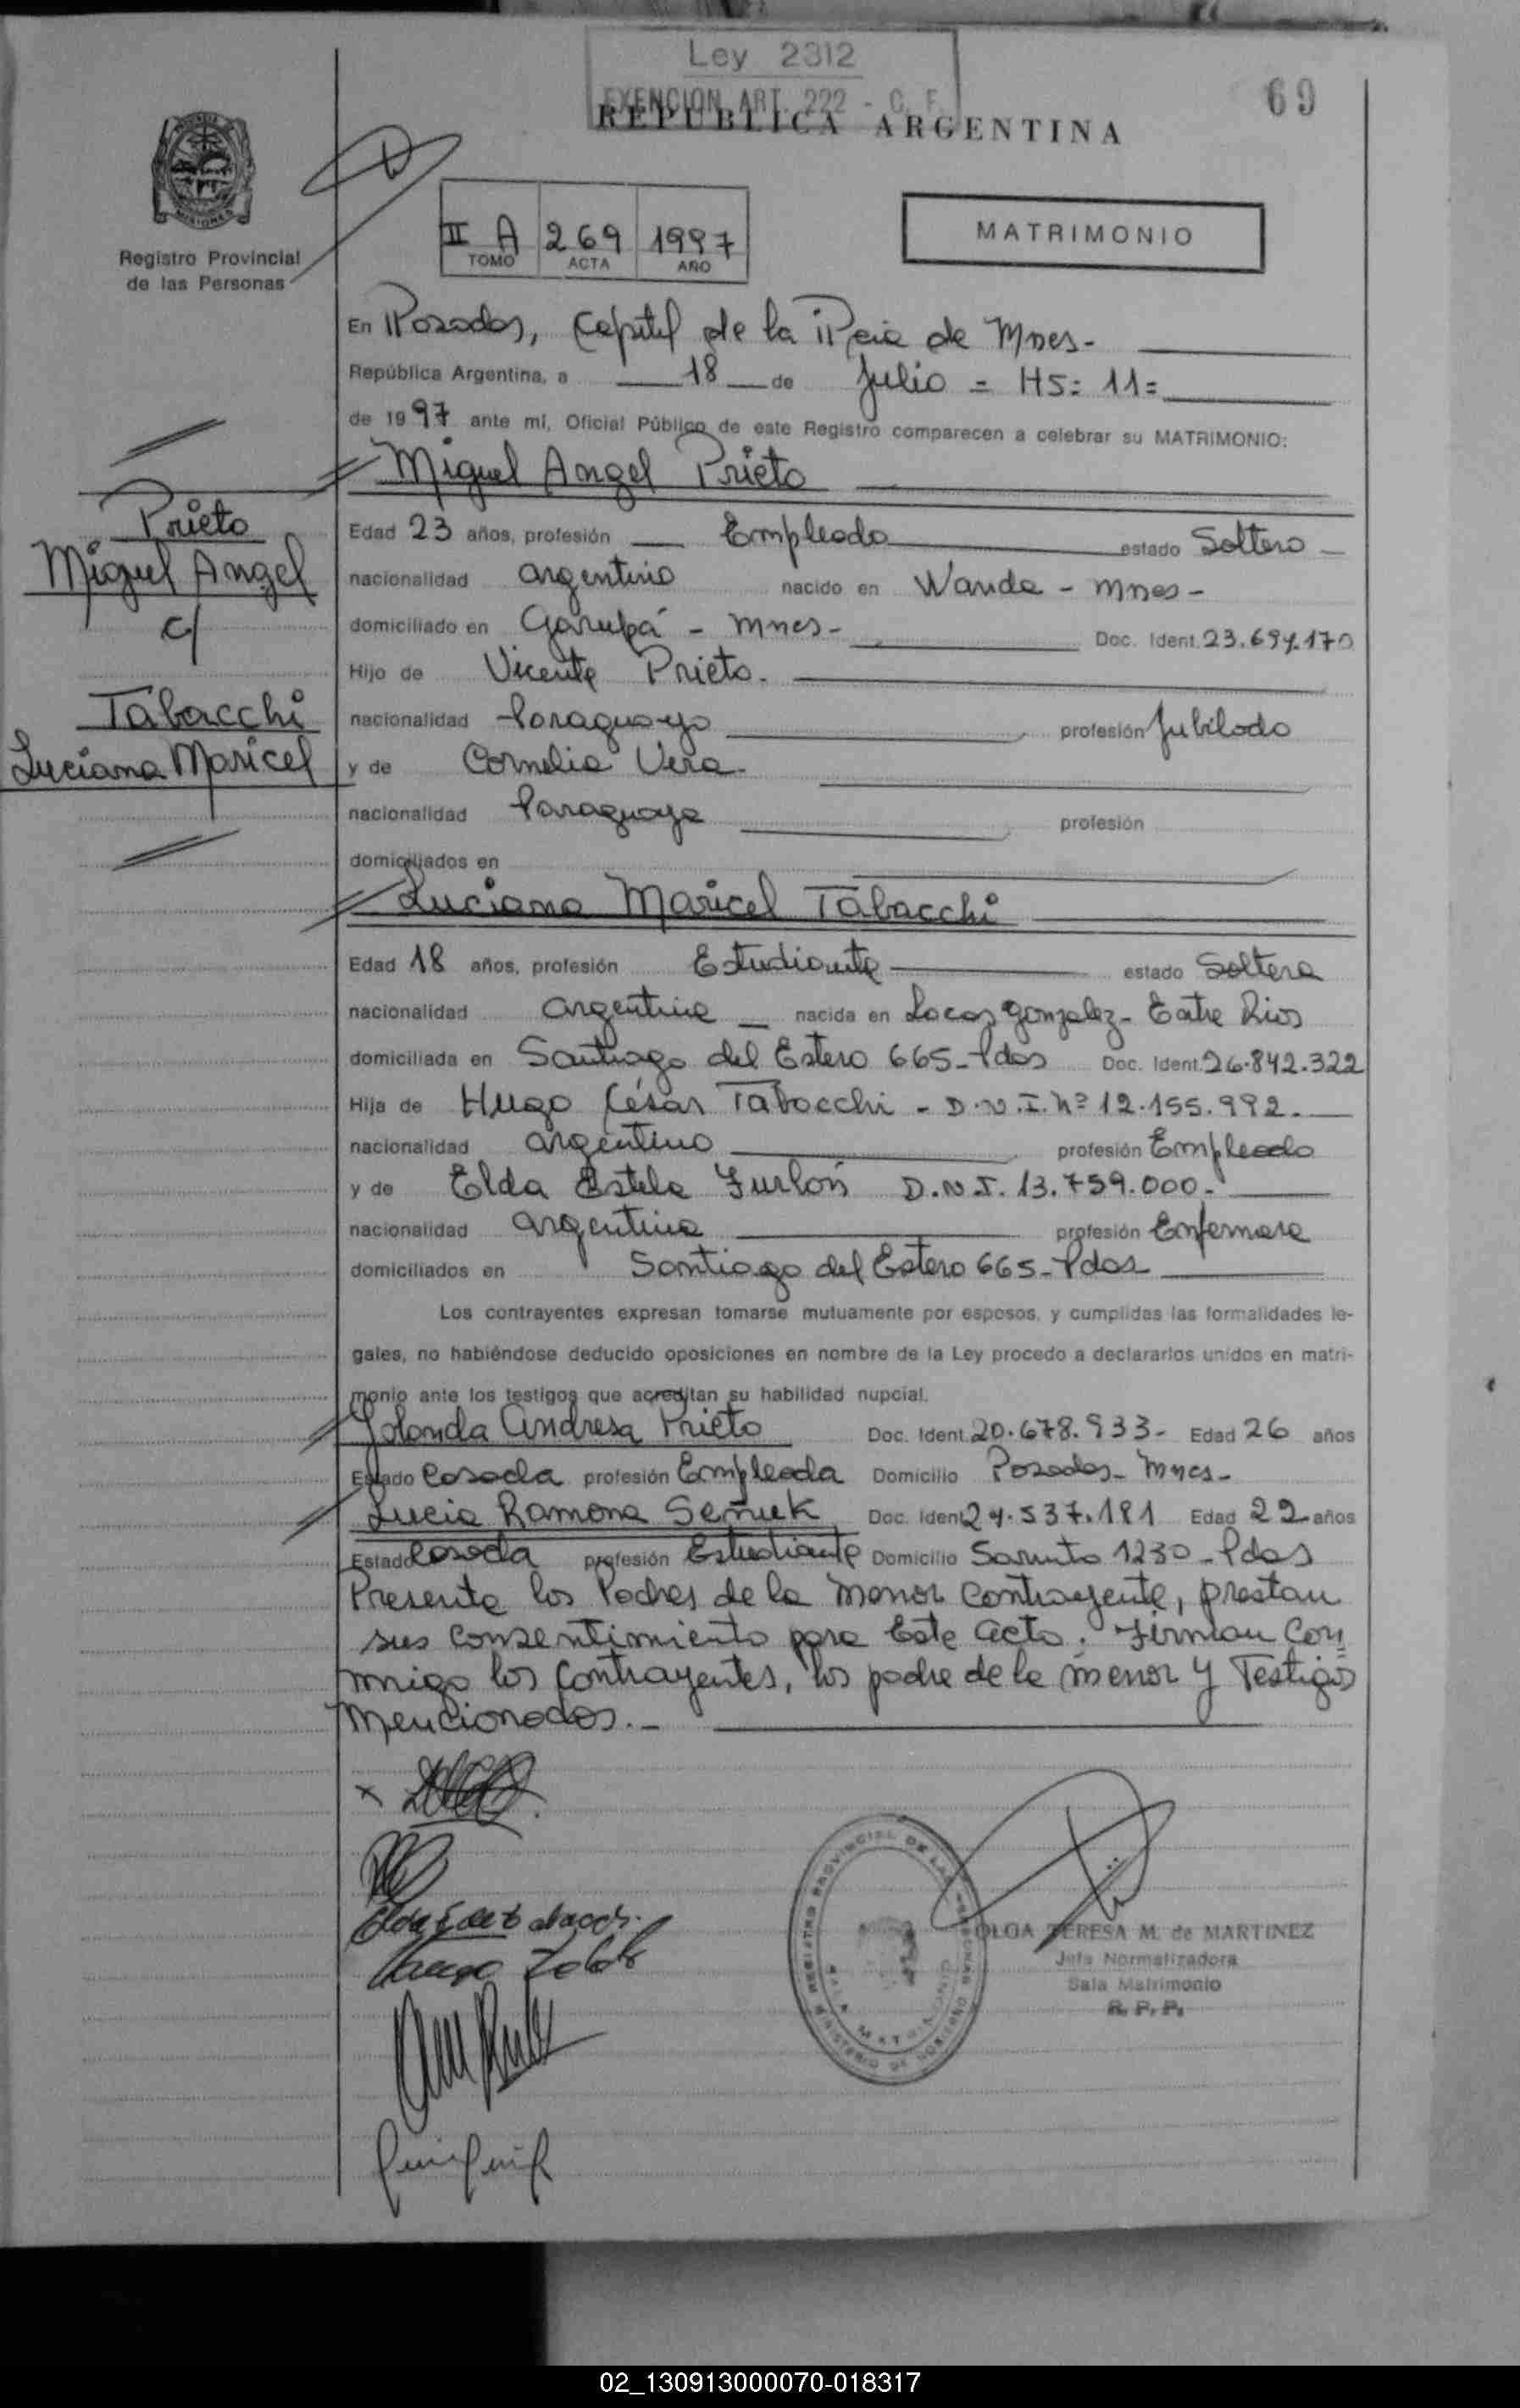 Ley 2312
EXENCION ART. 222 - C. F.
69
REPUBLICA ARGENTINA
MISIONES
Registro Provincial
de las Personas
II A 269 1997
TOMO ACTA AÑO
MATRIMONIO
En Posadas, Capital de la Pcia de Mnes-
República Argentina, a 18 de Julio = HS: 11=
de 1997 ante mí, Oficial Público de este Registro comparecen a celebrar su MATRIMONIO:
Miguel Angel Prieto
Prieto
Miguel Angel
c/
Tabacchi
Luciana Maricel
Edad 23 años, profesión Empleado estado Soltero
nacionalidad argentino nacido en Wanda - Mnes-
domiciliado en Garupá - Mnes- Doc. Ident. 23.694.170
Hijo de Vicente Prieto.
nacionalidad Paraguayo profesión Jubilado
y de Cornelia Vera-
nacionalidad Paraguaya profesión
domiciliados en
Luciana Maricel Tabacchi
Edad 18 años, profesión Estudiante estado Soltera
nacionalidad argentina nacida en Lucas Gonzalez- Entre Rios
domiciliada en Santiago del Estero 665-Pdas Doc. Ident. 26.842.322
Hija de Hugo César Tabacchi - D.N.I. Nº 12.155.992.
nacionalidad argentino profesión Empleado
y de Elda Estela Furlón D.N.I. 13.759.000.-
nacionalidad argentina profesión Enfermera
domiciliados en Santiago del Estero 665-Pdas
Los contrayentes expresan tomarse mutuamente por esposos, y cumplidas las formalidades le-
gales, no habiéndose deducido oposiciones en nombre de la Ley procedo a declararlos unidos en matri-
monio ante los testigos que acreditan su habilidad nupcial.
Yolanda Andresa Prieto Doc. Ident. 20.678.933- Edad 26 años
Estado Casada profesión Empleada Domicilio Posadas- Mnes-
Lucia Ramona Señuk Doc. Ident. 24.537.181 Edad 22 años
Estado Casada profesión Estudiante Domicilio Sarmto 1230-Pdas
Presente los Padres de la menor contrayente, prestan
sus consentimiento para Este acto. Firman Con
migo los contrayentes, los padre de la menor y Testigos
Mencionados.-
REGISTRO PROVINCIAL DE LAS PERSONAS
MINISTERIO DE GOBIERNO
MATRIMONIO
OLGA TERESA M. de MARTINEZ
Jefa Normalizadora
Sala Matrimonio
R. P. P.
02_130913000070-018317